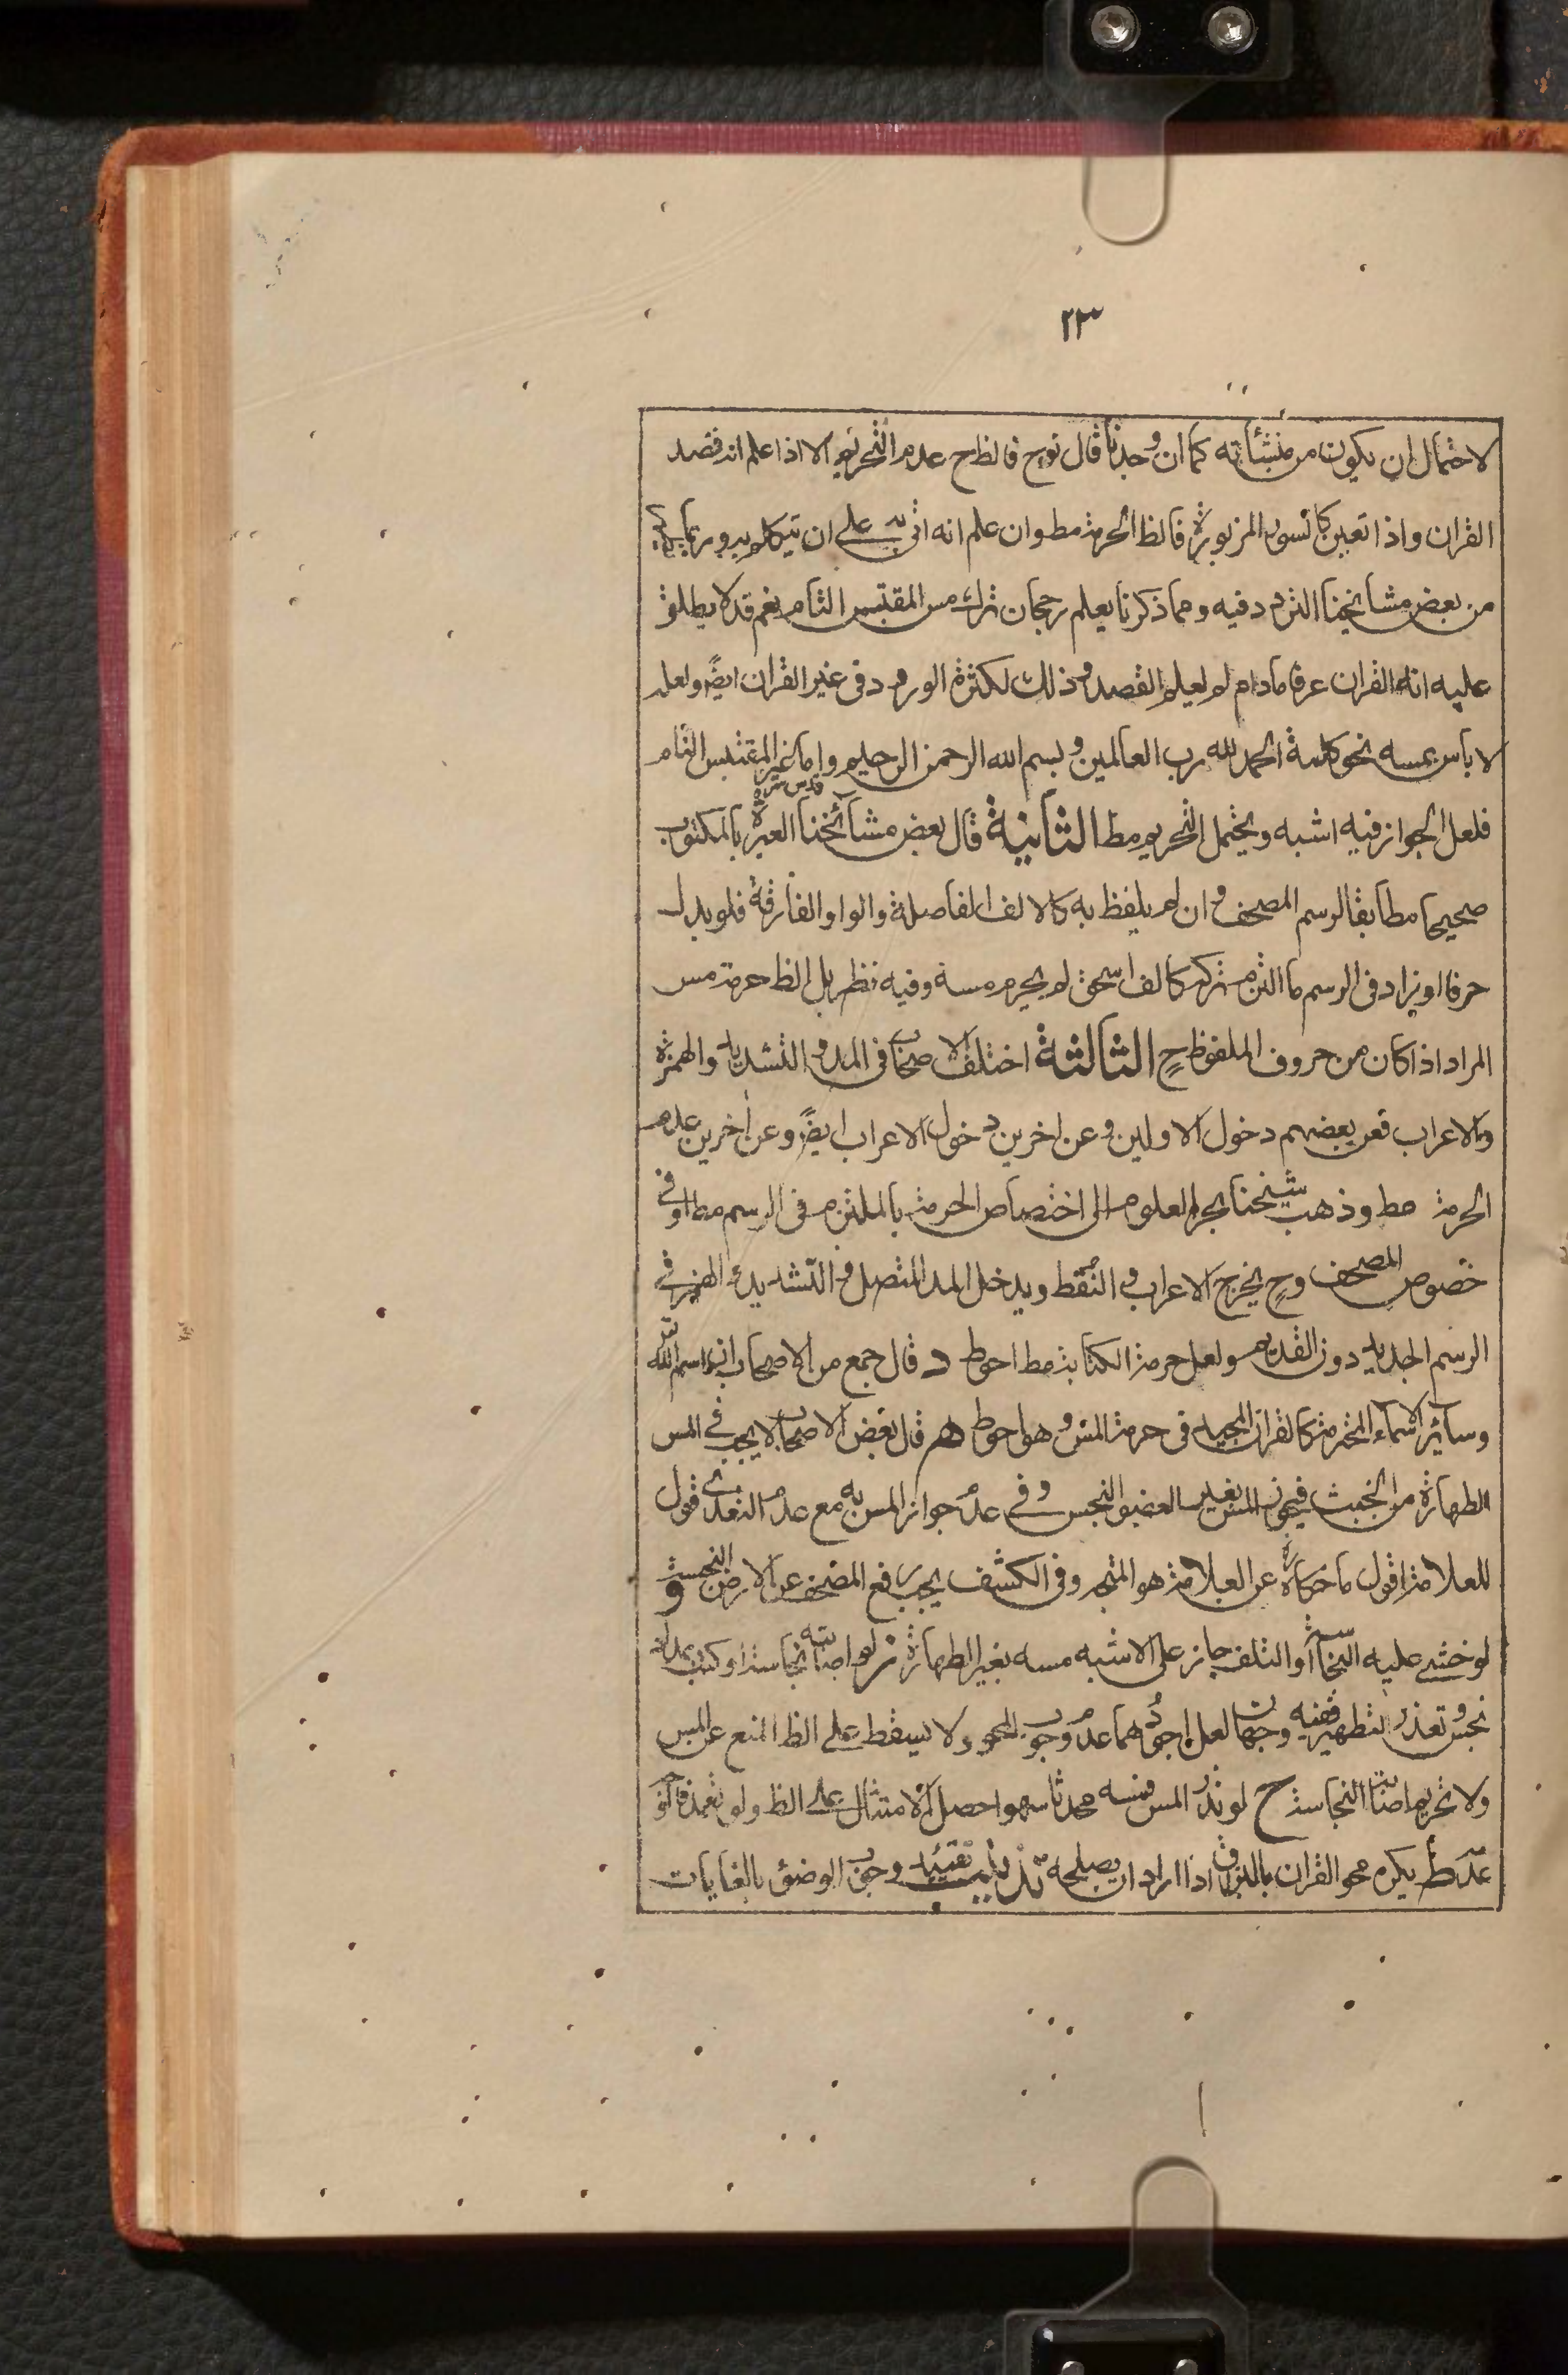 ٢٣
لاحتمال ان يكون من منشأته كما ان وجدنا قال نوح فالظ ح عدم التحريم الا اذا علم انه قصد
القران واذا تعين كالسور المزبورة فالظ الحرمة مط وان علم انه اتى به على ان يتكلم به وربما
من بعض مشايخنا التردد فيه ومما ذكرنا يعلم رجحان ترك مس المقتبس التام نعم قد لا يطلق
عليه انه القران عرفا مادام لم يعلم القصد وذلك لكثرة الورود فى غير القران ايضً ولعله
لا بأس بمسه نحو كلمة الحمد لله رب العالمين وبسم الله الرحمن الرحيم واما غير المقتبس التام
فلعل الجواز فيه اشبه ويحتمل التحريم مط الثانية قال بعض مشائخنا قدس سره العبرة بالمكتوب
صحيحا مطابقا لرسم المصحف وان لم يلفظ به كالالف الفاصلة والواو الفارقة فلو بدل
حرفا او زاد فى الرسم ما التزم تركه كالف اسحق لم يحرم مسه وفيه نظر بل الظ حرمة مس
المراد اذا كان من حروف الملفوظ ح الثالثة اختلف الاصحاب فى المد والتشديد والهمزة
والاعراب فعن بعضهم دخول الاولين وعن اخرين دخول الاعراب ايضً وعن اخرين عدم
الحرمة مط وذهب شيخنا بحر العلوم الى اختصاص الحرمة بالملتزم فى الرسم مط او فى
خصوص المصحف وح يخرج الاعراب والنقط ويدخل المد المتصل والتشديد والهمز فى
الرسم الجديد دون القديم ولعل حرمة الكتابة مط احوط د قال جمع من الاصحاب ان اسم الله
وسائر الاسماء المحترمة كالقران المجيد فى حرمة المس وهو احوط هـ قال بعض الاصحاب لا يجب فى المس
الطهارة من الخبث فيجوز المس بغير العضو النجس وفى عدم جواز المس به مع عدم التعدى قول
للعلامة اقول ما حكاه عن العلامة هو المتجه وفى الكشف يجب رفع المصحف عن الارض النجسة و
لو خشى عليه النجاسة او التلف جاز على الاشبه مسه بغير الطهارة ز لو اصابته نجاسة او كتب بمداد
نجس وتعذر التطهير ففيه وجهان لعل اجودهما عدم وجوب المحو ولا يسقط على الظ المنع عن المس
ولا تحريم اصابة النجاسة ح لو نذر المس فمسه محدثا سهوا حصل الامتثال على الظ ولو تعمد فالاقوى
عدمه ط يكره محو القران بالبزاق اذا اراد ان يصلحه تذنيب تقييد وجوب الوضوء بالغايات